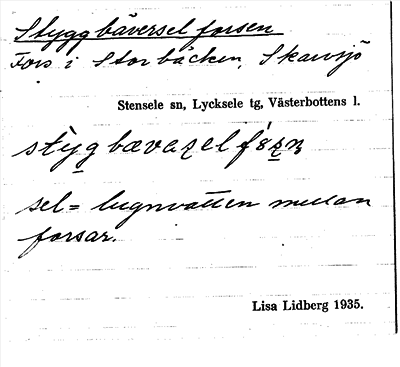 Styggbäversel forsen
Fors i Storbäcken, Skarvsjö
Stensele sn, Lycksele tg, Västerbottens l.
sel = lugnvatten mellan
forsar.
Lisa Lidberg 1935.